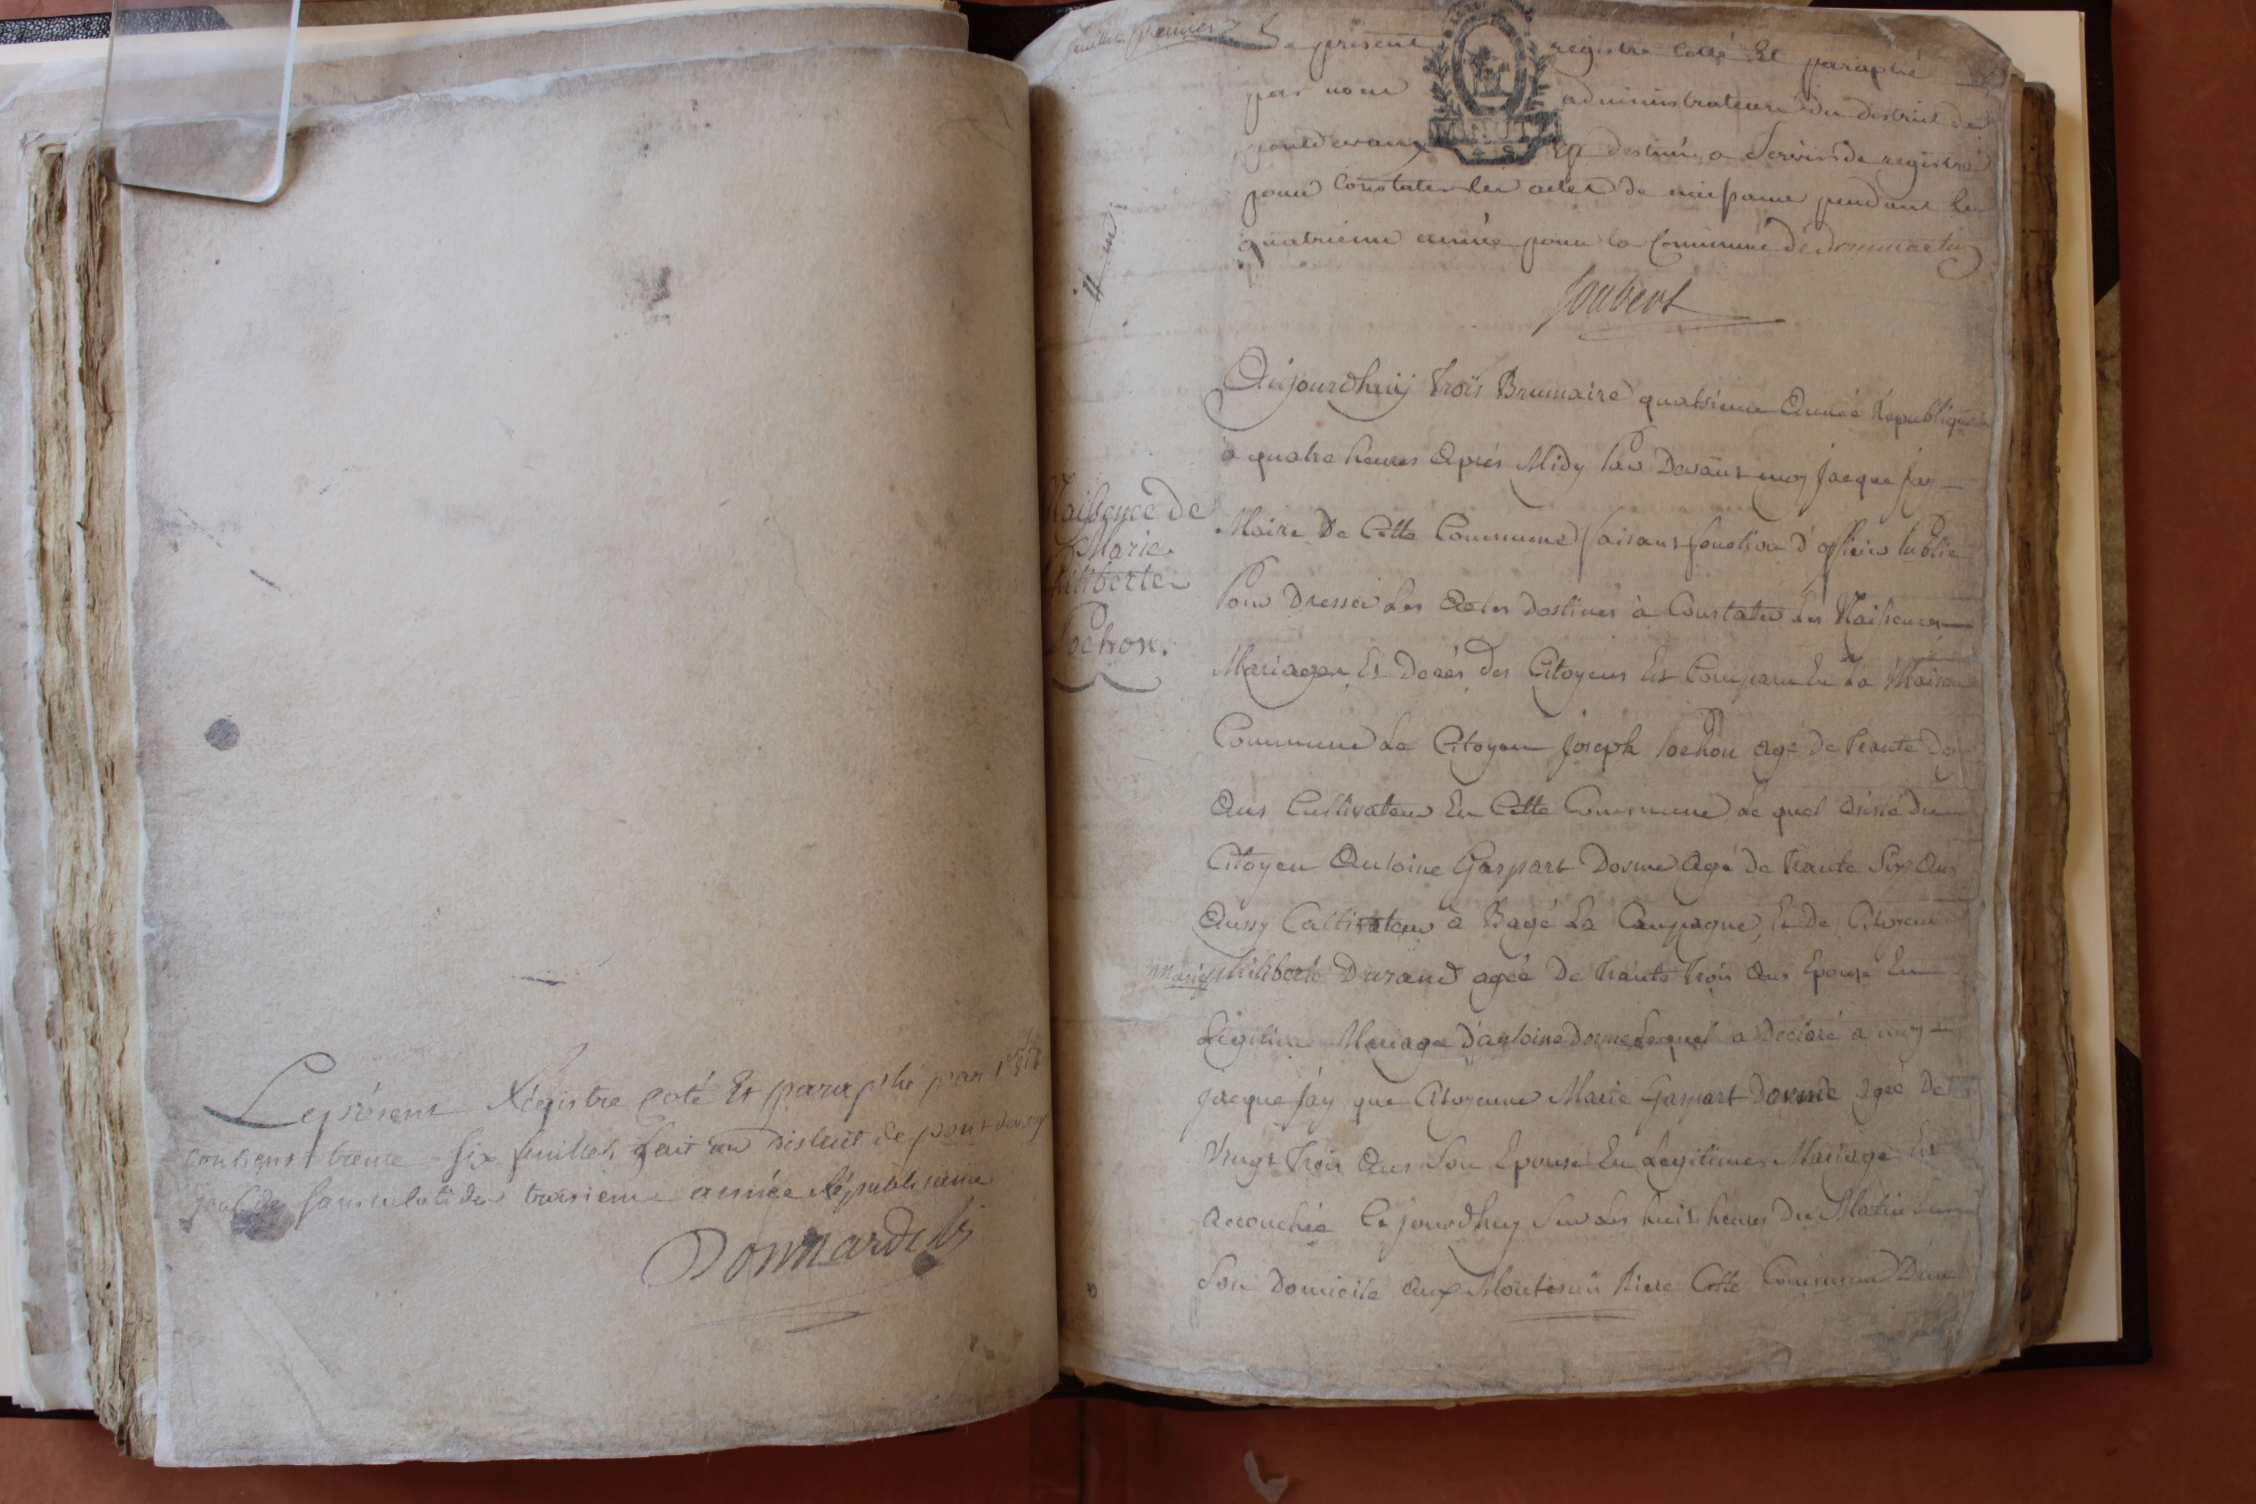 Le présent Régistre coté Et paraphé par
contient trente six feuillets fait au District de pont de vey
sansculotides troisieme année Républicaine
feuillet premier
Le présent registre cotté Et paraphé
par nous administrateur du District de
pontdevaux Est destiné a Servir de registre
pour Constater les actes de naissance pendant la
quatrieme année pour la Commune de dommartin
Joubert
Naissance de
Marie
philiberte
Pochon.
Aujourdhuÿ trois Brumaire quatrieme Année Républiquaine
à quatre heures Après Midy Par Devant moy Jacque Jay
Maire De Cette Commune faisant fonction d'officier Public
Pour Dresser Les Actes Destinés à Constater Les Naissances
Mariages Et Décés des Citoyens Est Comparu En La Maison
Commune Le Citoyen Joseph Pochon Agé De trante deux
Ans Cultivateur En Cette Commune Le quel Assisté Du
Citoyen Antoine Gaspart Dosme Agé De trante Six Ans
Aussy Cultivateur à Bagé La Campagne, Et De Citoyenne
marie philiberte Durand agée De trante trois Ans Epouse En
Légitime Mariage d'antoine Dosme Lequel a Declaré a moy
Jacque Jay que Citoyenne Marie Gaspart Dosme agée De
Vingt trois Ans Son Epouse En Legitime Mariage Est
Accouchée Ce jourdhuy Sur Les huit heures Du Matin Dans
Son Domicile Aux Cette Commune D'une